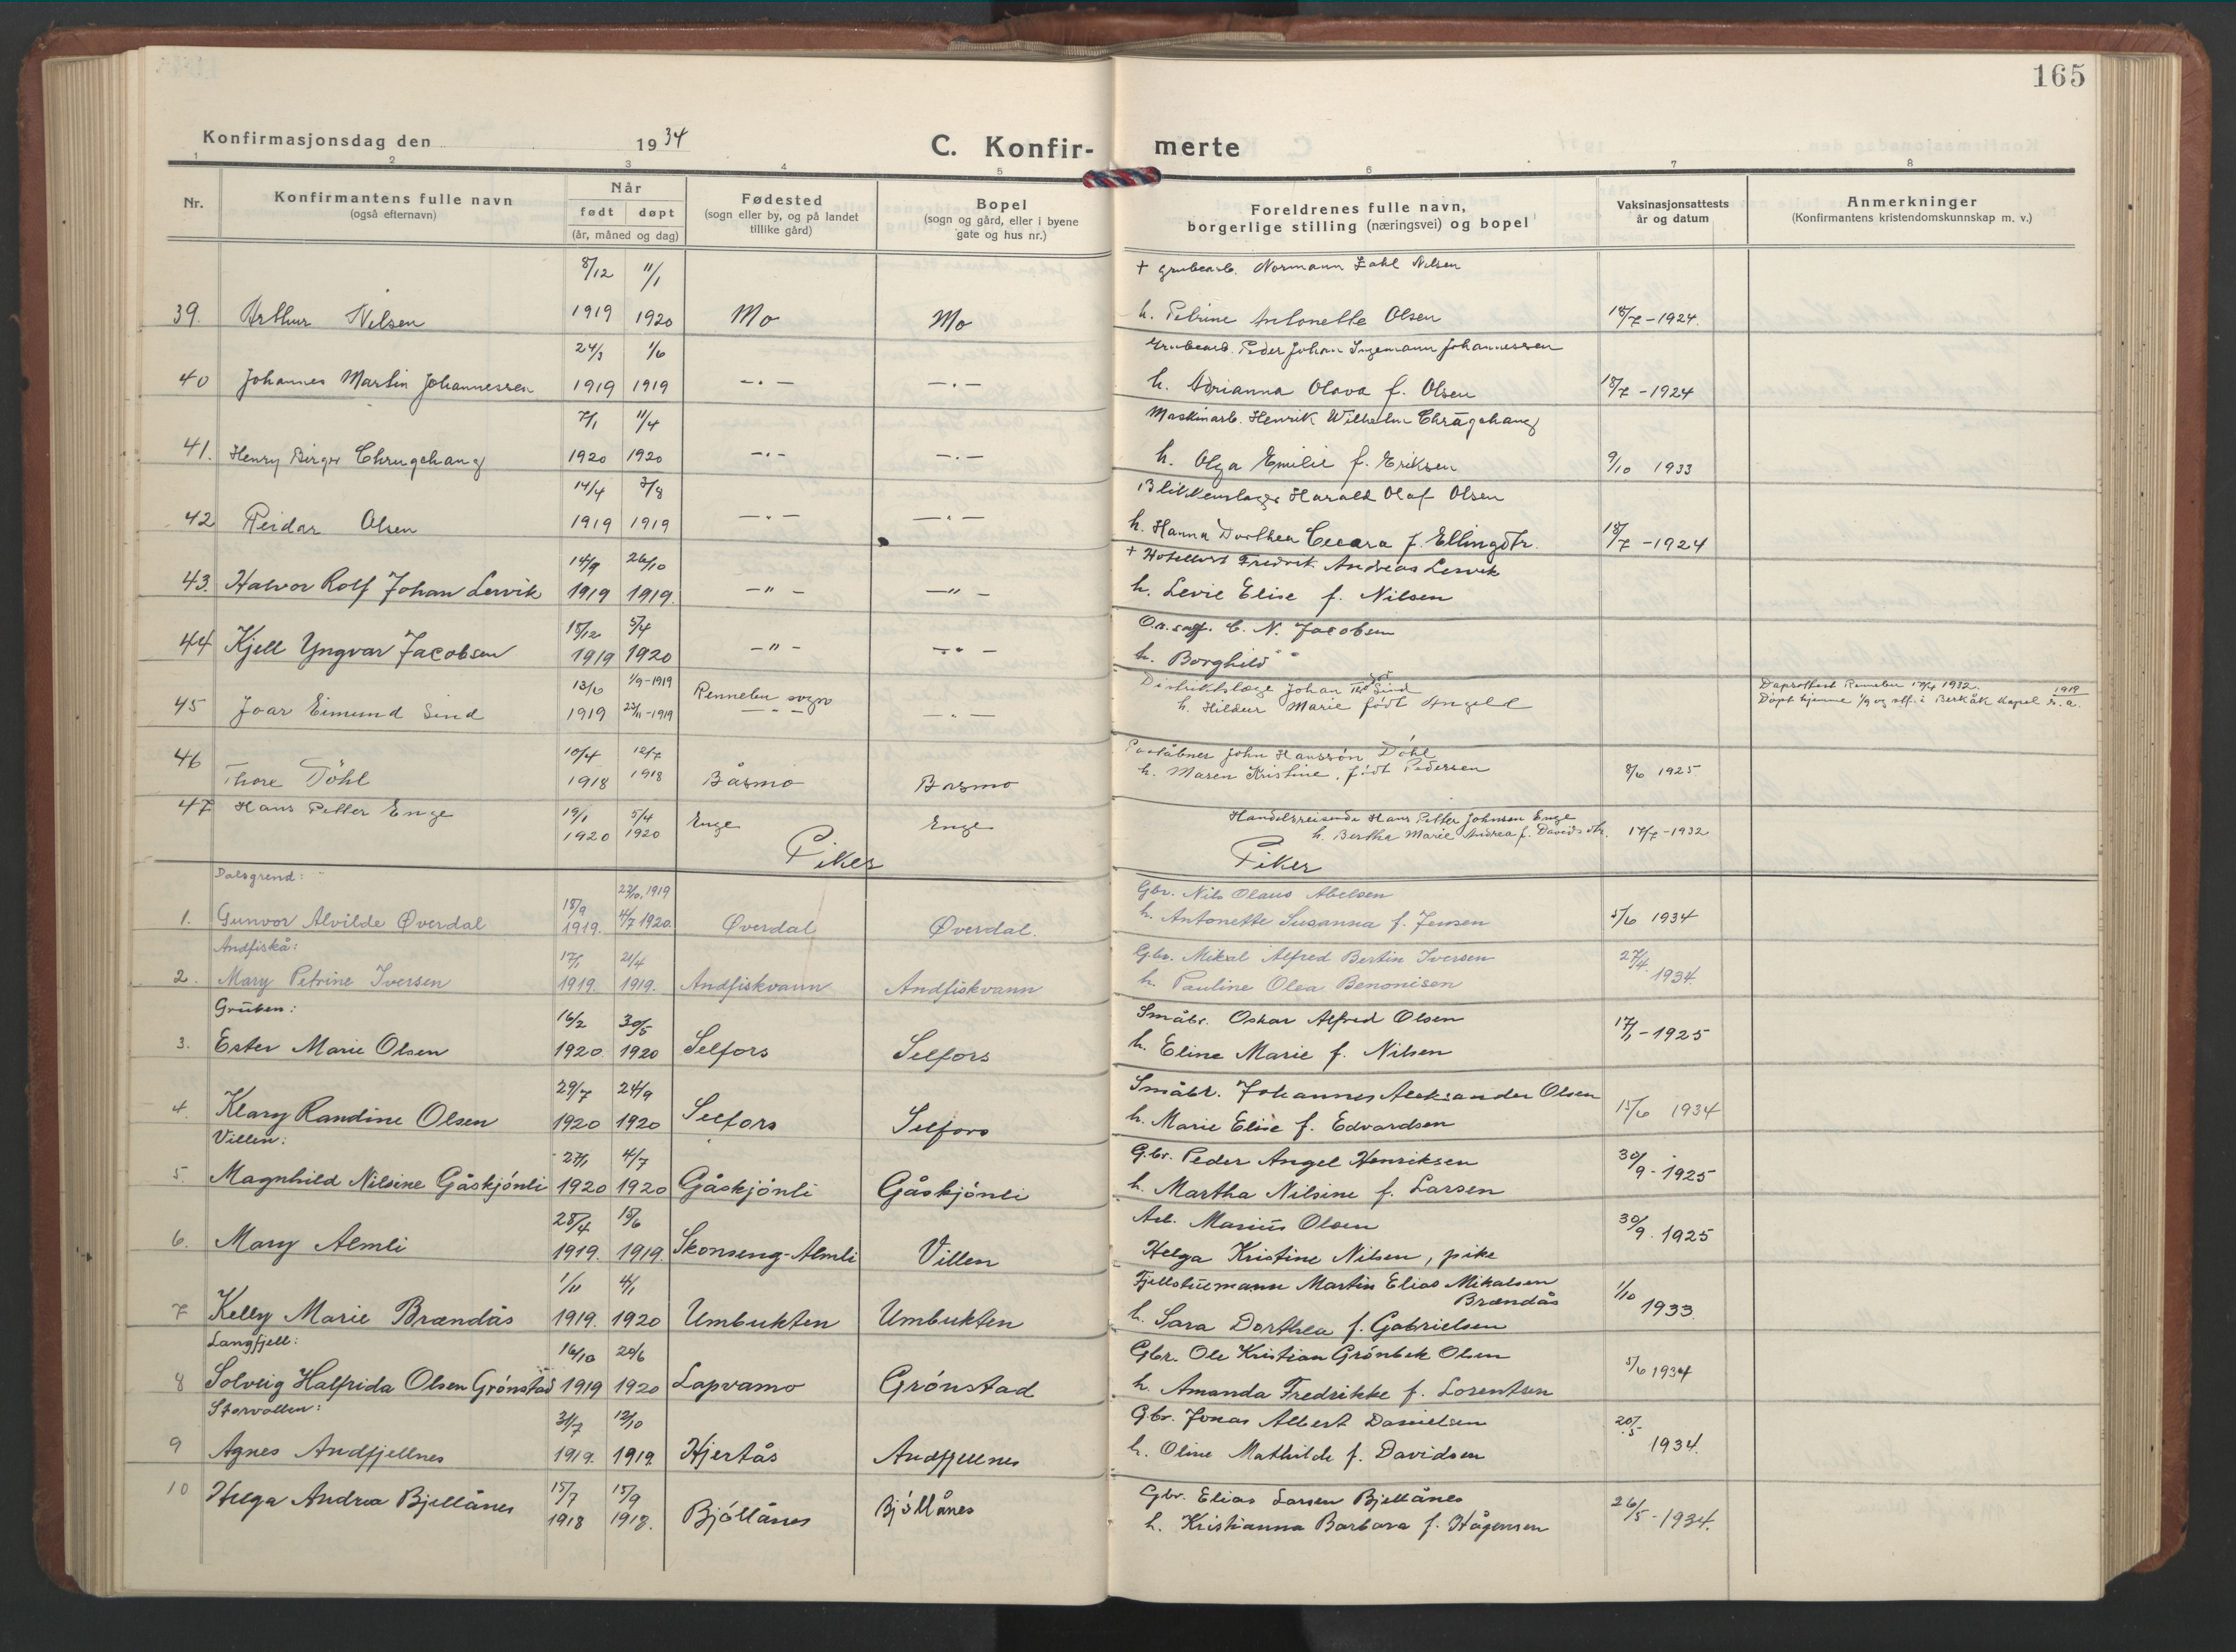 165
Konfirmasjonsdag den 1934
C. Konfir- merte
1 2 3 4 5 6 7 8
Nr. Konfirmantens fulle navn (også efternavn) Når født døpt (år, måned og dag) Fødested (sogn eller by, og på landet tillike gård) Bopel (sogn og gård, eller i byene gate og hus nr.) Foreldrenes fulle navn, borgerlige stilling (næringsvei) og bopel Vaksinasjonsattests år og datum Anmerkninger (Konfirmantens kristendomskunnskap m. v.)
8/12 11/1 + grubearb. Normann Zahl Nilsen
39. Arthur Nilsen 1919 1920 Mo Mo h. Petrine Antonette Olsen 18/7 - 1924.
24/3 1/6 Grubearb. Peder Johan Ingemann Johannessen
40 Johannes Martin Johannessen 1919 1919 —.— —.— h. Adrianna Olava f. Olsen 18/7 - 1924
7/1 11/4 Maskinarb. Henrik Wilhelm
41. Henry Birger 1920 1920 —.— —.— h. Olga Emilie f. Eriksen 9/10 1933
14/4 3/8 Blikkenslager Harald Olaf Olsen
42 Reidar Olsen 1919 1919 —"— —"— h. Hanna Dorthea f. Ellingdtr. 18/7 - 1924
14/9 26/10 + Hotellvert Fredrik Andreas Lervik
43. Halvor Rolf Johan Lervik 1919 1919. —"— —"— h. Levie Elise f. Nilsen
18/12 5/4 C. N. Jacobsen
44 Kjell Yngvar Jacobsen 1919 1920 —"— —"— h. Borghild " "
13/6 1/9-1919 Rennebu sogn Distriktslæge Johan Sind Dåpsattest Rennebu 1932.
45 Joar Eimund Sind 1919 23/11-1919 —"— —"— h. Hildur Marie født Angell Døpt hjemme 1/9 og stf. i Berkåk kapel 1919 s. a.
10/4 12/7 Poståbner John Hanssön Döhl
46 Thore Döhl 1918 1918 Båsmo Båsmo h. Maren Kristine, født Pedersen 8/6 1925
47 Hans Petter Enge 19/1 1920 5/4 1920 Enge Enge Handelsreisende Hans Petter Johnsen Enge
h. Bertha Marie Andrea f. Davidsdtr. 17/7 - 1932
Piker Piker
Dalsgrend: 18/9 23/10, 1919 Gbr. Nils Olaus Abelsen
1. Gunvor Alvilde Øverdal 1919. 4/7 1920. Øverdal Øverdal. h. Antonette Susanna f. Jensen 5/6 1934
Andfiskå: 17/1 21/4 Gbr. Mikal Alfred Bertin Iversen
2. Mary Petrine Iversen 1919. 1919. Andfiskvann Andfiskvann h. Pauline Olea Benonisen 27/4 1934.
Gruben: 16/2 30/5 Småbr. Oskar Alfred Olsen
3. Ester Marie Olsen 1920. 1920 Selfors Selfors h. Eline Marie f. Nilsen 17/1 - 1925
29/7 24/9 Småbr. Johannes Aleksander Olsen
4. Klary Randine Olsen 1920 1920 Selfors Selfors h. Marie Elise f. Edvardsen 15/6 1934
Villen: 27/1 4/7 Gbr. Peder Angel Henriksen
5. Magnhild Nilsine Gåskjönli 1920 1920 Gåskjönli Gåskjönli h. Martha Nilsine f. Larsen 30/9 - 1925
28/4 15/6 Arb. Marius Olsen
6. Mary Almli 1919. 1919. Skonseng-Almli Villen Helga Kristine Nilsen, pike 30/9. 1925
1/11 4/1 Fjellstuemann Martin Elias Mikalsen Brændås
7 Kelly Marie Brændås 1919. 1920 Umbukten Umbukten h. Sara Dorthea f. Gabrielsen 1/10 1933.
Langfjell: 16/10 20/6 Gbr. Ole Kristian Grönbek Olsen
8 Solveig Halfrida Olsen Grönstad 1919 1920 Lapvamo Grönstad h. Amanda Fredrikke f. Lorentsen 5/6 1934
Storvollen: 31/7 12/10 Gbr. Jonas Albert Danielsen
9 Agnes Andfjellnes 1919. 1919. Hjertås Andfjellnes h. Oline Mathilde f. Davidsen 20/5 1934.
10 Helga Andrea Bjellånes 15/7 15/9 Gbr. Elias Larsen Bjellånes
1918 1918. Bjöllånes Bjöllånes h. Kristianna Barbara f. Hågensen 26/5 - 1934.